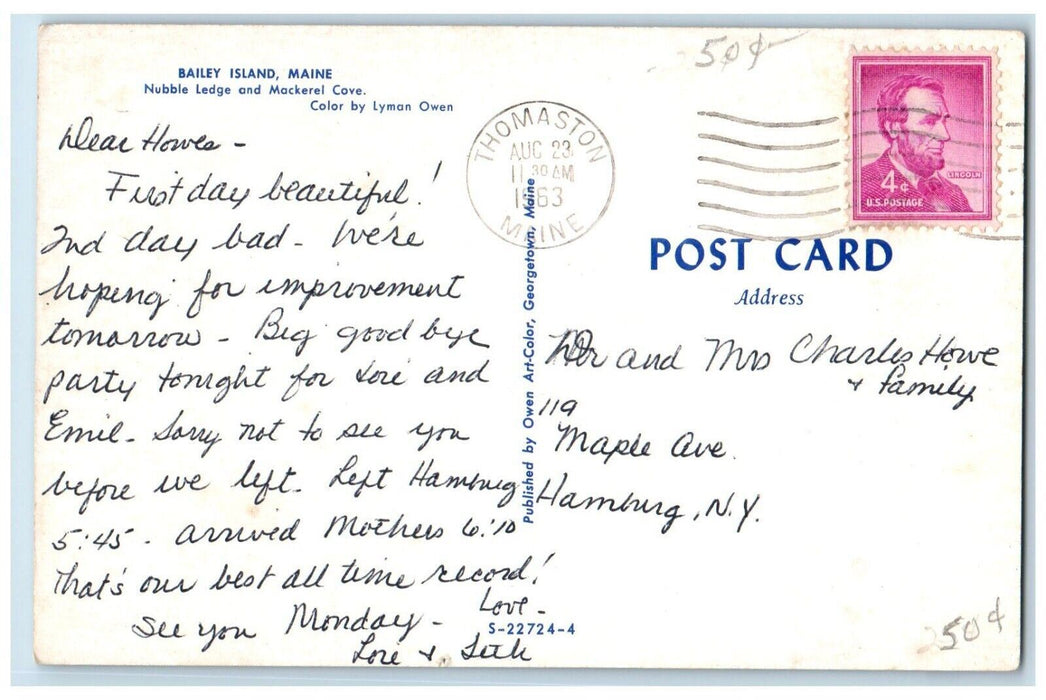 BAILEY ISLAND, MAINE
Nubble Ledge and Mackerel Cove.
Color by Lyman Owen
Dear Howes -
First day beautiful!
2nd day bad - We're
hoping for improvement
tomorrow - Big good bye
party tonight for Lore and
Emil - Sorry not to see you
before we left - Left Hamburg
5:45 - arrived Mothers 6:10
That's our best all time record!
See you Monday -
Love -
Lore &
S-22724-4
Published by Owen Art-Color, Georgetown, Maine
THOMASTON
AUG 23
11 30 AM
1963
MAINE
50¢
4¢
LINCOLN
U.S. POSTAGE
POST CARD
Address
Dr and Mrs Charles Howe
& family
119
Maple Ave.
Hamburg, N.Y.
50¢